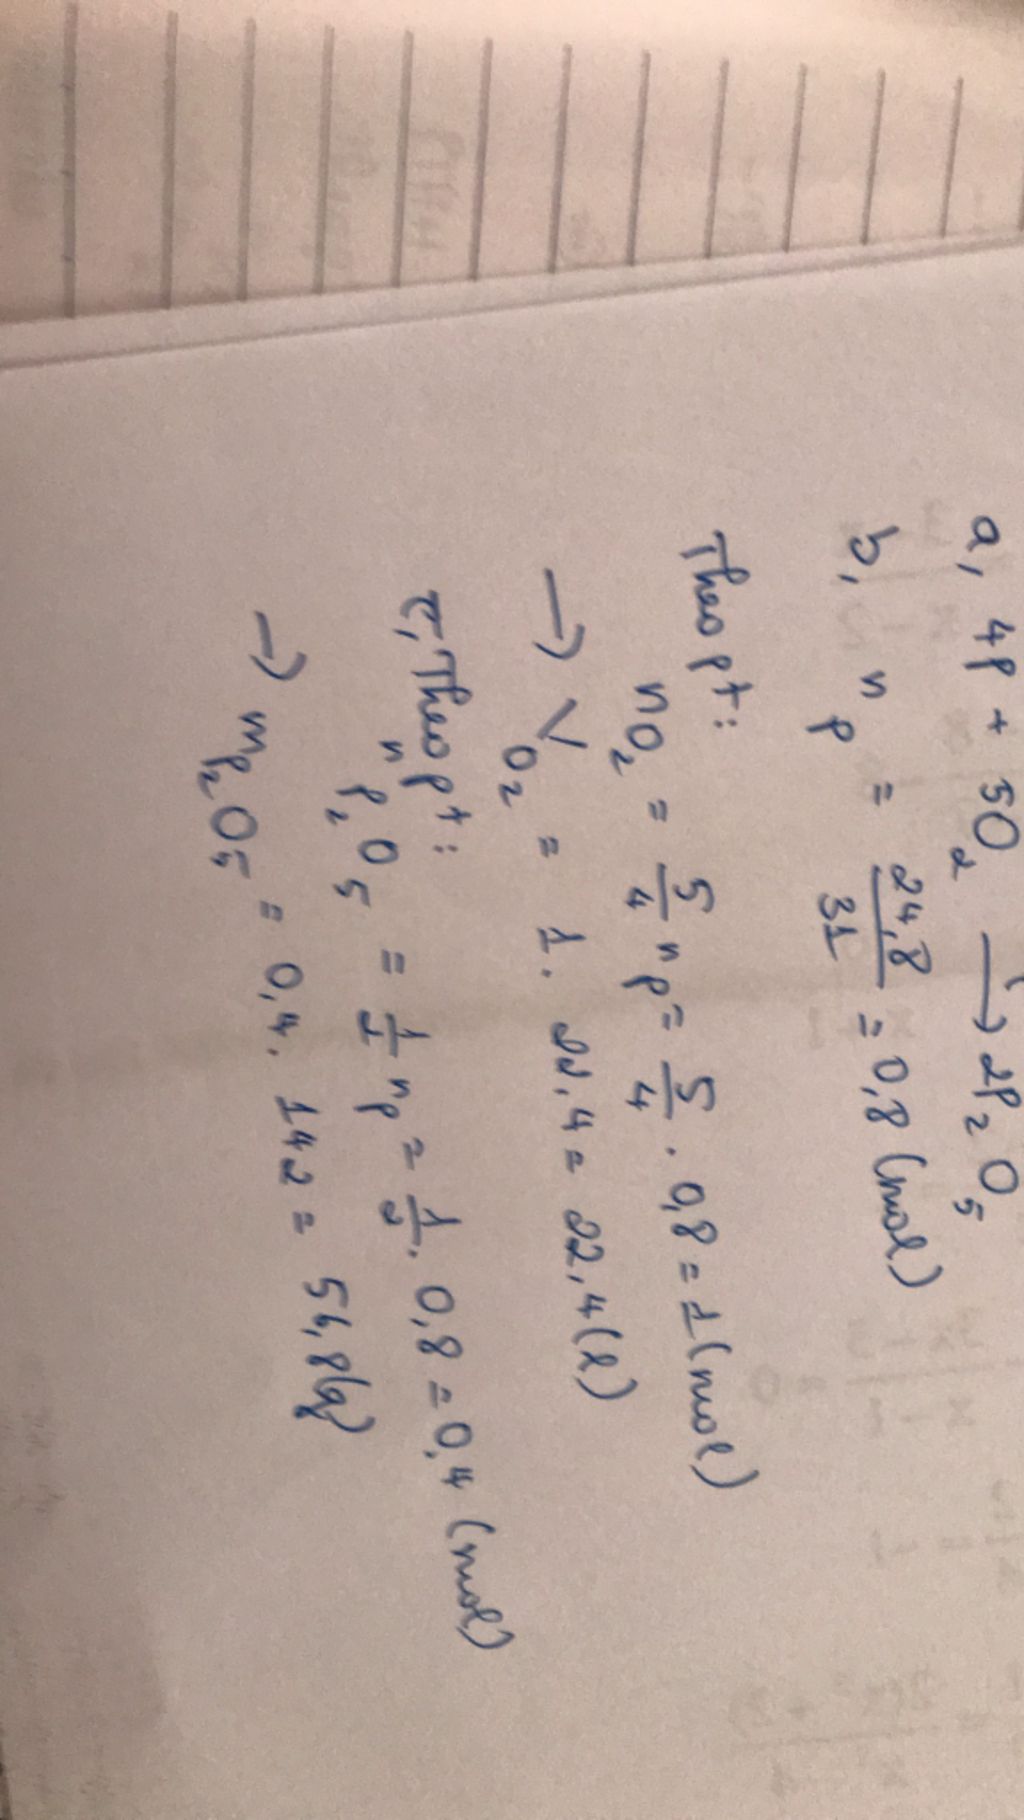 a, 4P + 5O₂ → 2P₂O₅
b, nP = 24,8/31 = 0,8 (mol)
Theo pt:
nO₂ = 5/4 nP = 5/4 . 0,8 = 1 (mol)
→ VO₂ = 1. 22,4 = 22,4 (l)
c, Theo pt:
nP₂O₅ = 1/2 nP = 1/2 . 0,8 = 0,4 (mol)
→ mP₂O₅ = 0,4. 142 = 56,8 (g)